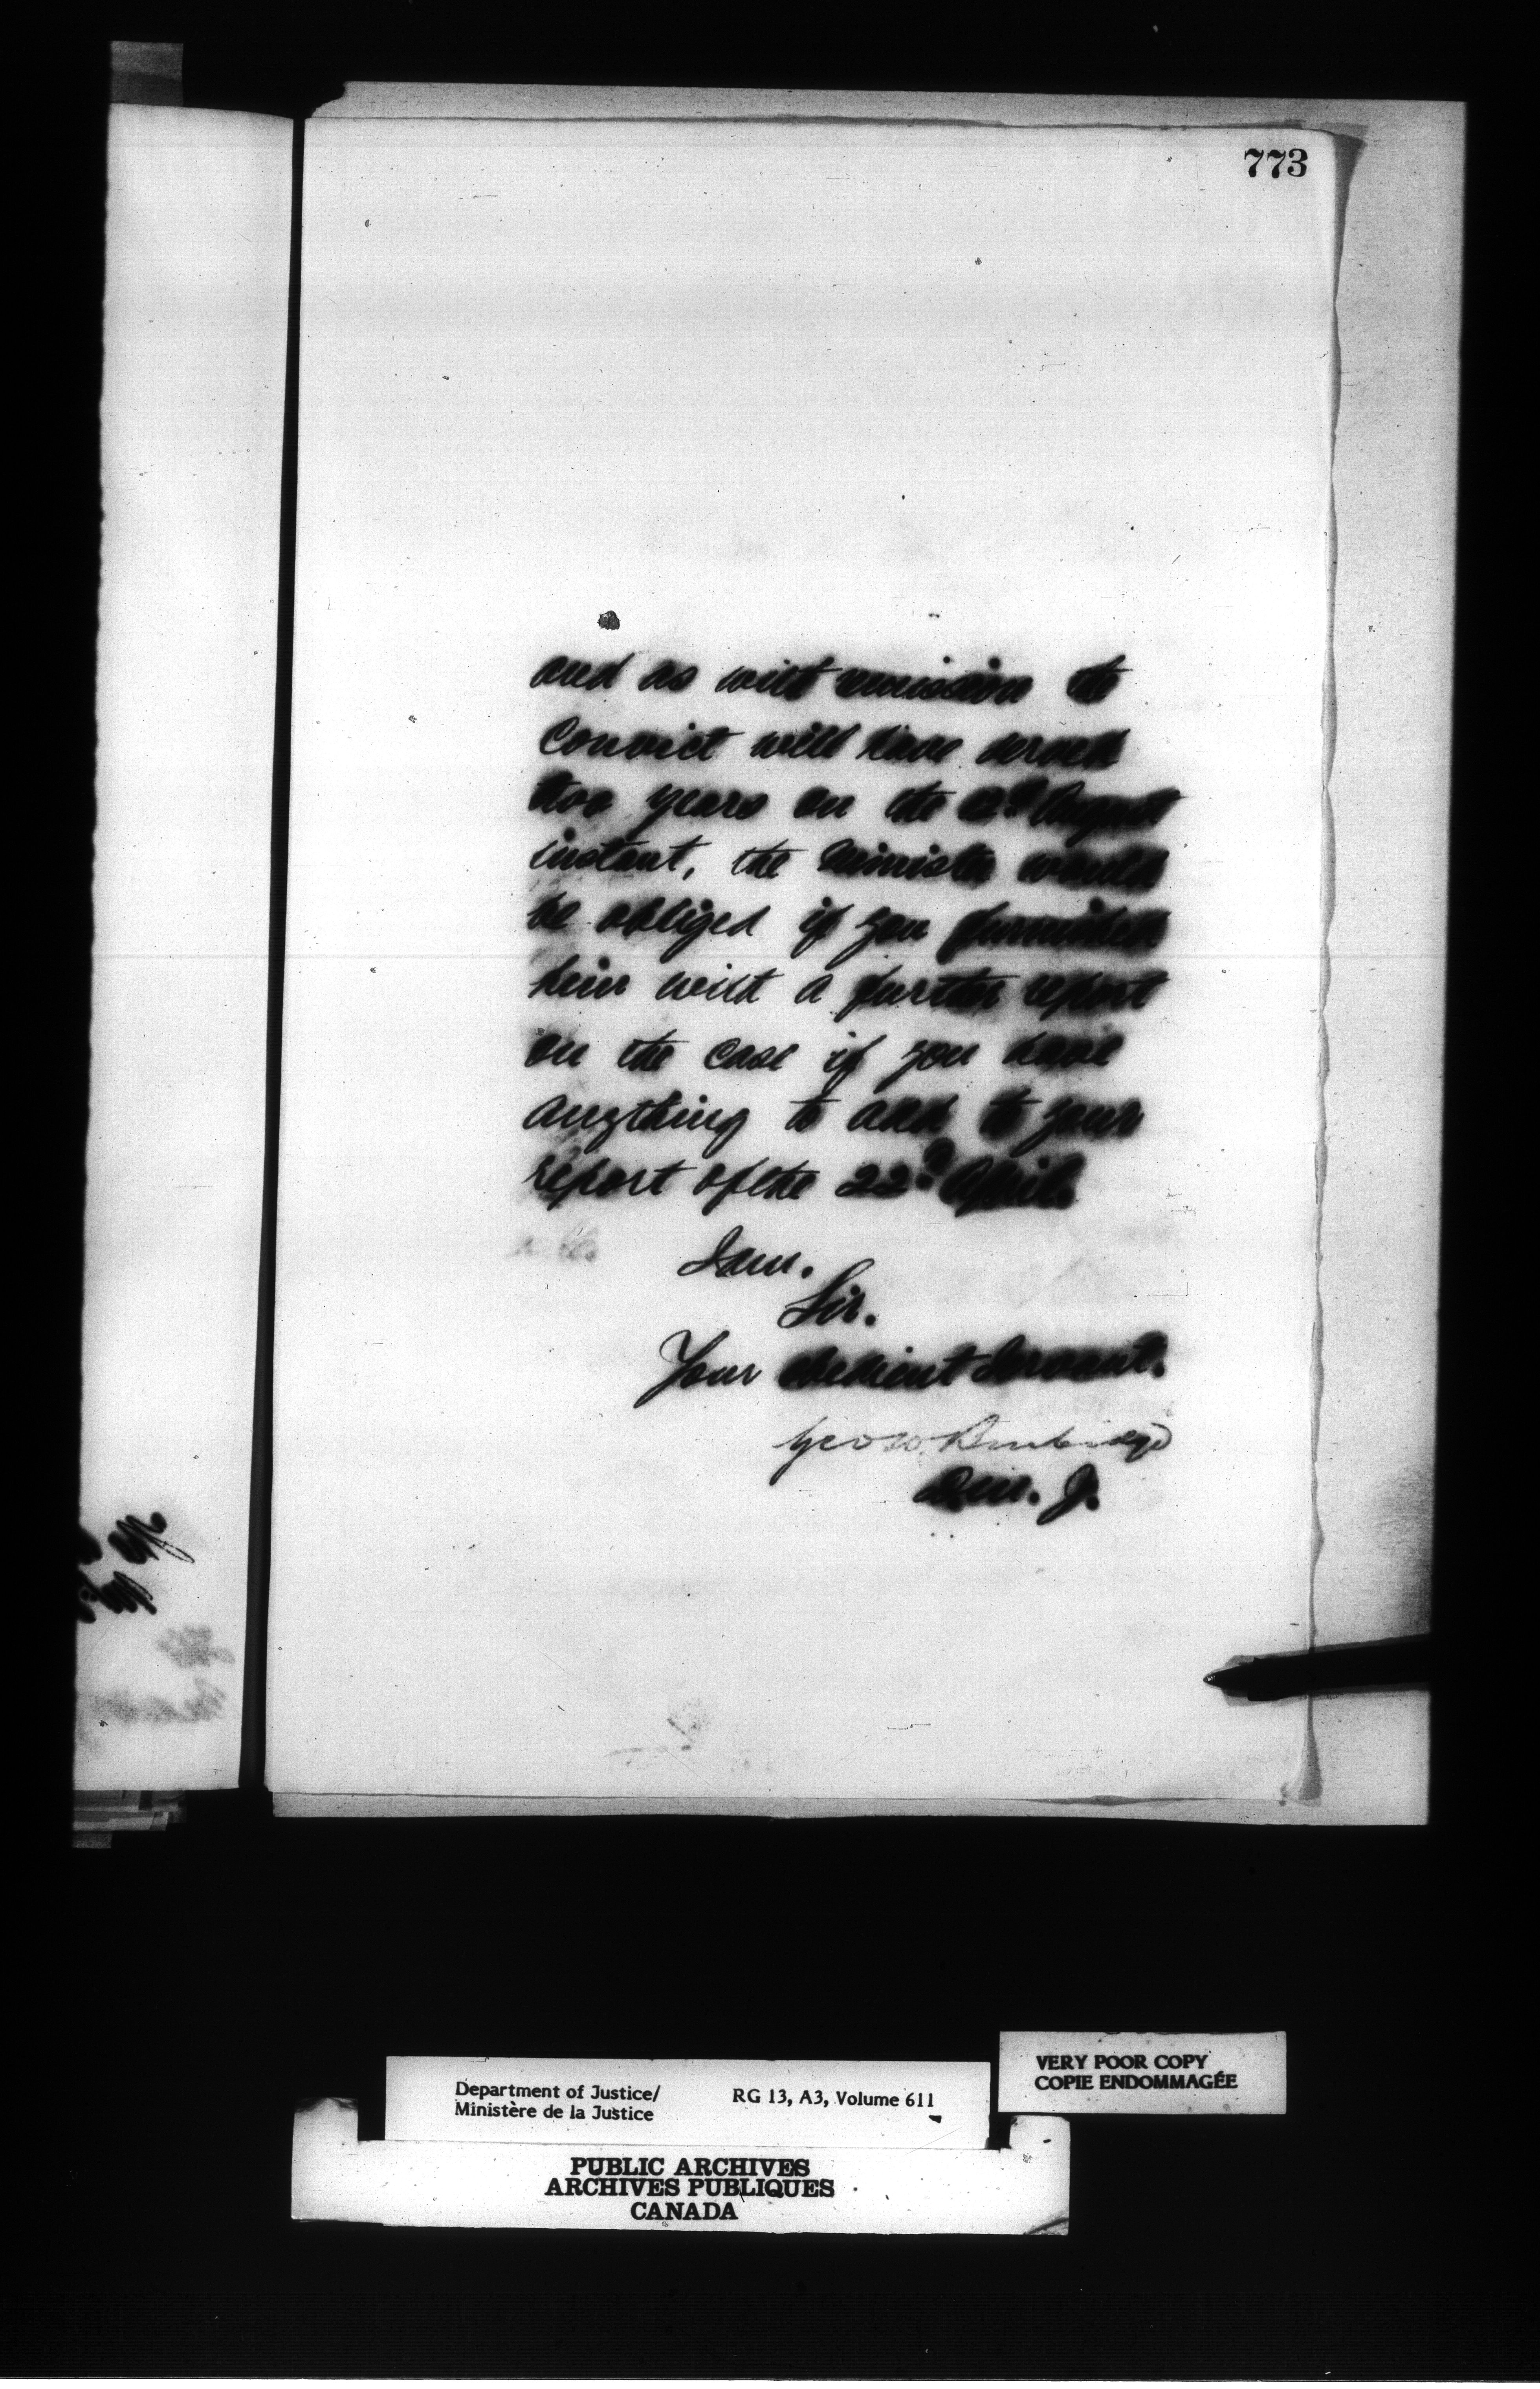 773
and as with remission the
convict will have served
two years on the August
instant, the Minister would
be obliged if you furnished
him with a further report
on the case if you have
anything to add to your
report of the 22d April.
I am.
Sir.
Your obedient Servant.
Geo W. Burbidge
D.M. J.
Department of Justice/
Ministère de la Justice
RG 13, A3, Volume 611
VERY POOR COPY
COPIE ENDOMMAGÉE
PUBLIC ARCHIVES
ARCHIVES PUBLIQUES
CANADA